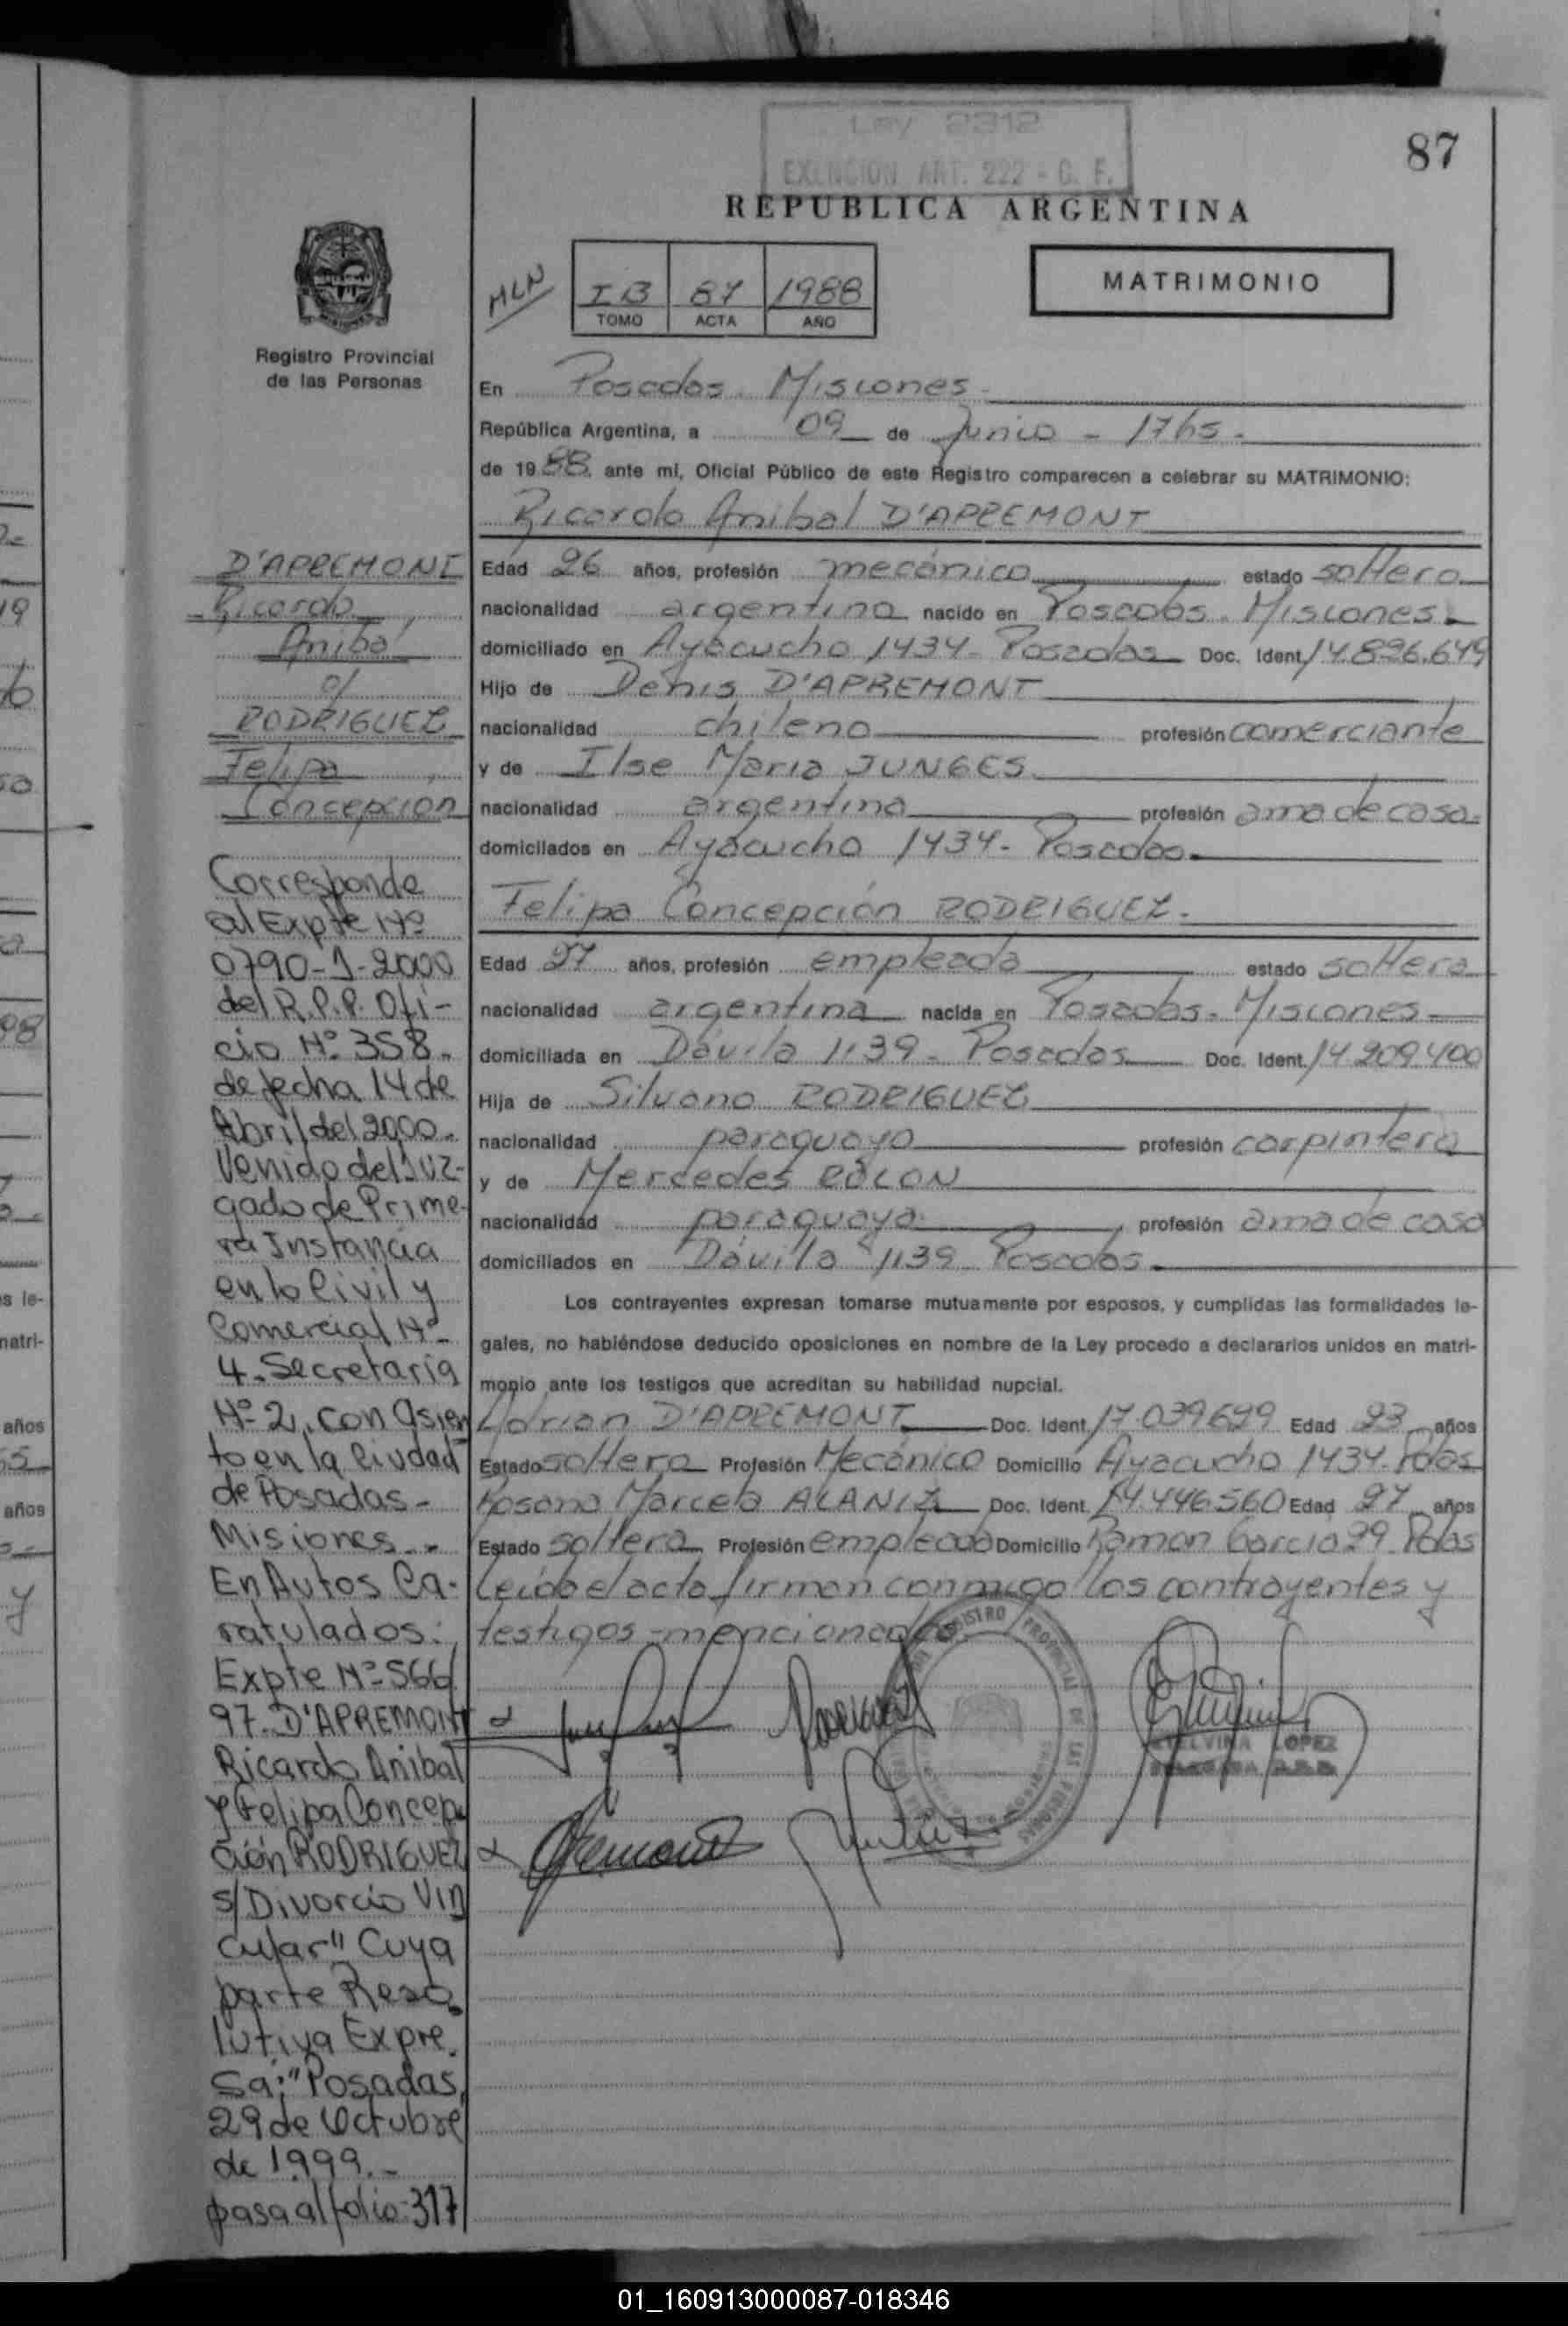 Ley 2312
EXENCION ART. 222 - C. F.
87
REPUBLICA ARGENTINA
MLN
I B 87 1988
TOMO ACTA AÑO
MATRIMONIO
Registro Provincial
de las Personas
En Posadas. Misiones.
República Argentina, a 09 de Junio - 1765.
de 1988. ante mí, Oficial Público de este Registro comparecen a celebrar su MATRIMONIO:
Ricardo Anibal D'APREMONT
Edad 26 años, profesión mecánico estado soltero
nacionalidad argentina nacido en Posadas. Misiones.
domiciliado en Ayacucho 1434 - Posadas Doc. Ident. 14.896.649
Hijo de Denis D'APREMONT
nacionalidad chileno profesión comerciante
y de Ilse Maria JUNGES
nacionalidad argentina profesión ama de casa.
domiciliados en Ayacucho 1434 - Posadas.
Felipa Concepción RODRIGUEZ.
Edad 27 años, profesión empleada estado soltera
nacionalidad argentina nacida en Posadas - Misiones.
domiciliada en Dávila 1139 - Posadas Doc. Ident. 14.209.400
Hija de Silvano RODRIGUEZ
nacionalidad paraguayo profesión carpintero
y de Mercedes ROLON
nacionalidad paraguaya profesión ama de casa
domiciliados en Dávila 1139 Posadas.
Los contrayentes expresan tomarse mutuamente por esposos, y cumplidas las formalidades le-
gales, no habiéndose deducido oposiciones en nombre de la Ley procedo a declararlos unidos en matri-
monio ante los testigos que acreditan su habilidad nupcial.
Adrian D'APREMONT Doc. Ident. 17.039.699 Edad 23 años
Estado soltero Profesión Mecánico Domicilio Ayacucho 1434. Pdas
Rosana Marcela ALANIZ Doc. Ident. 14.446.560 Edad 27 años
Estado soltera Profesión empleada Domicilio Ramon Garcia 29 Pdas
Leída el acta firman conmigo los contrayentes y
testigos mencionados.
RODRIGUEZ
REGISTRO PROVINCIAL DE LAS PERSONAS
LOPEZ
D'APREMONT
Ricardo
Anibal
c/
RODRIGUEZ
Felipa
Concepción
Corresponde
al Expte Nº
0790-J-2000
del R.P.P. Ofi-
cio Nº 358.
de fecha 14 de
Abril del 2000.
Venido del Juz-
gado de Prime-
ra Instancia
en lo Civil y
Comercial Nº
4. Secretaria
Nº 2, con asien
to en la Ciudad
de Posadas -
Misiones.
En Autos Ca-
ratulados:
Expte Nº 566/
97. D'APREMONT
Ricardo Anibal
y Felipa Concep
ción RODRIGUEZ
s/Divorcio Vin
cular" Cuya
parte Reso
lutiva Expre.
sa: "Posadas,
29 de Octubre
de 1999.-
pasa al folio: 317
años
años
01_160913000087-018346